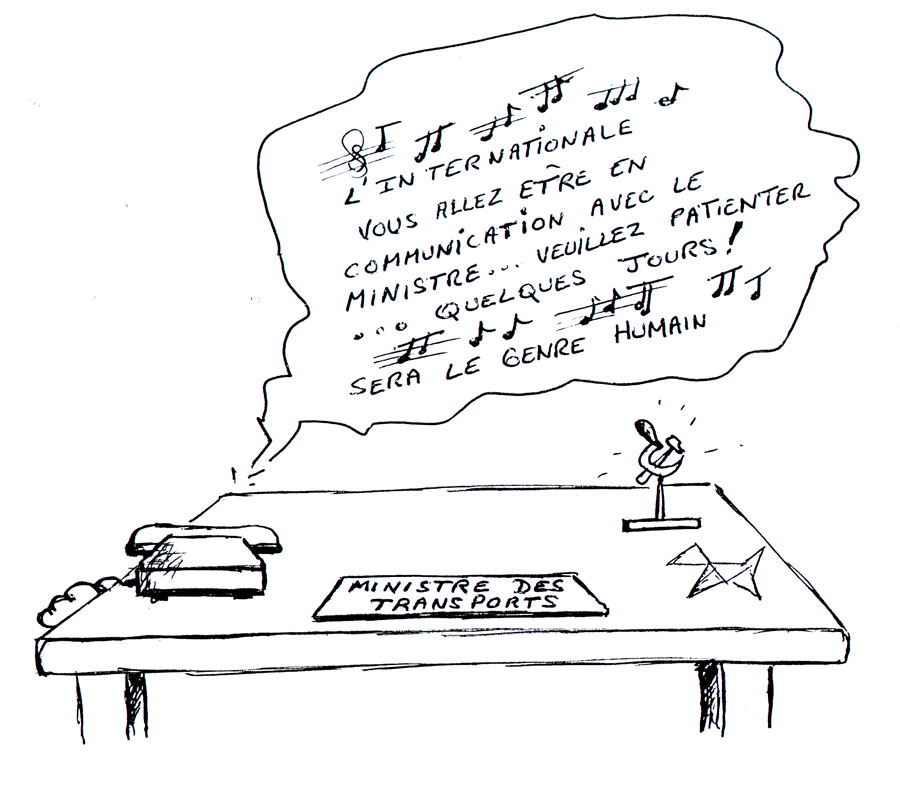 L'INTERNATIONALE
VOUS ALLEZ ETRE EN
COMMUNICATION AVEC LE
MINISTRE... VEUILLEZ PATIENTER
... QUELQUES JOURS!
SERA LE GENRE HUMAIN
MINISTRE DES
TRANSPORTS